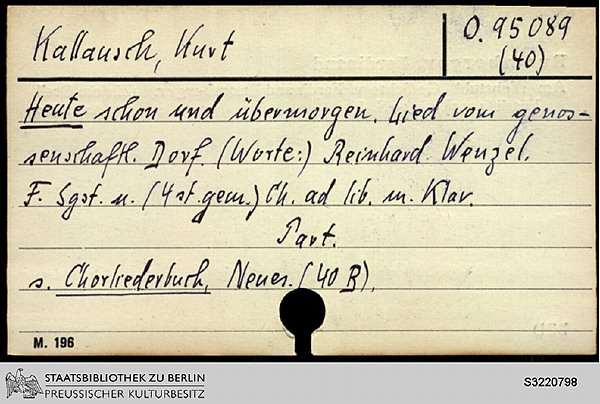 Kallausch, Kurt
O. 95089
(40)
Heute schon und übermorgen. Lied vom genos-
senschaftl. Dorf. (Worte:) Reinhard Wenzel.
F. Sgst. u. (4st.gem.) Ch. ad lib. m. Klav.
Part.
s. Chorliederbuch, Neues. (40 B).
M. 196
STAATSBIBLIOTHEK ZU BERLIN
PREUSSISCHER KULTURBESITZ
S3220798